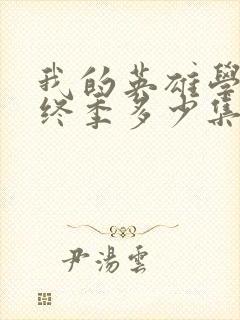 我的英雄學
终季多少集
尹湯雲